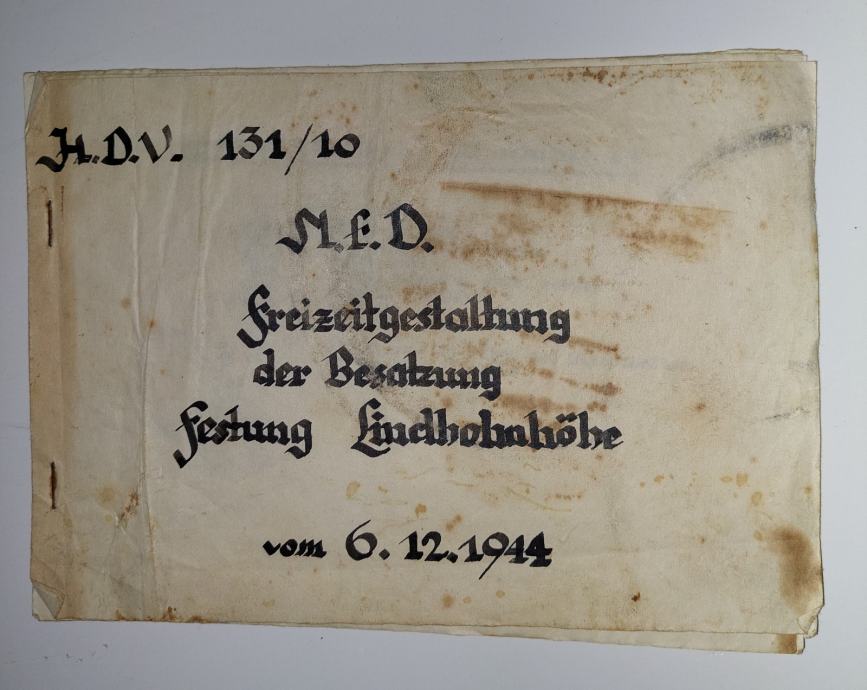 H.D.V. 131/10
N.f.D.
Freizeitgestaltung
der Besatzung
Festung Lindholmhöhe
vom 6.12.1944